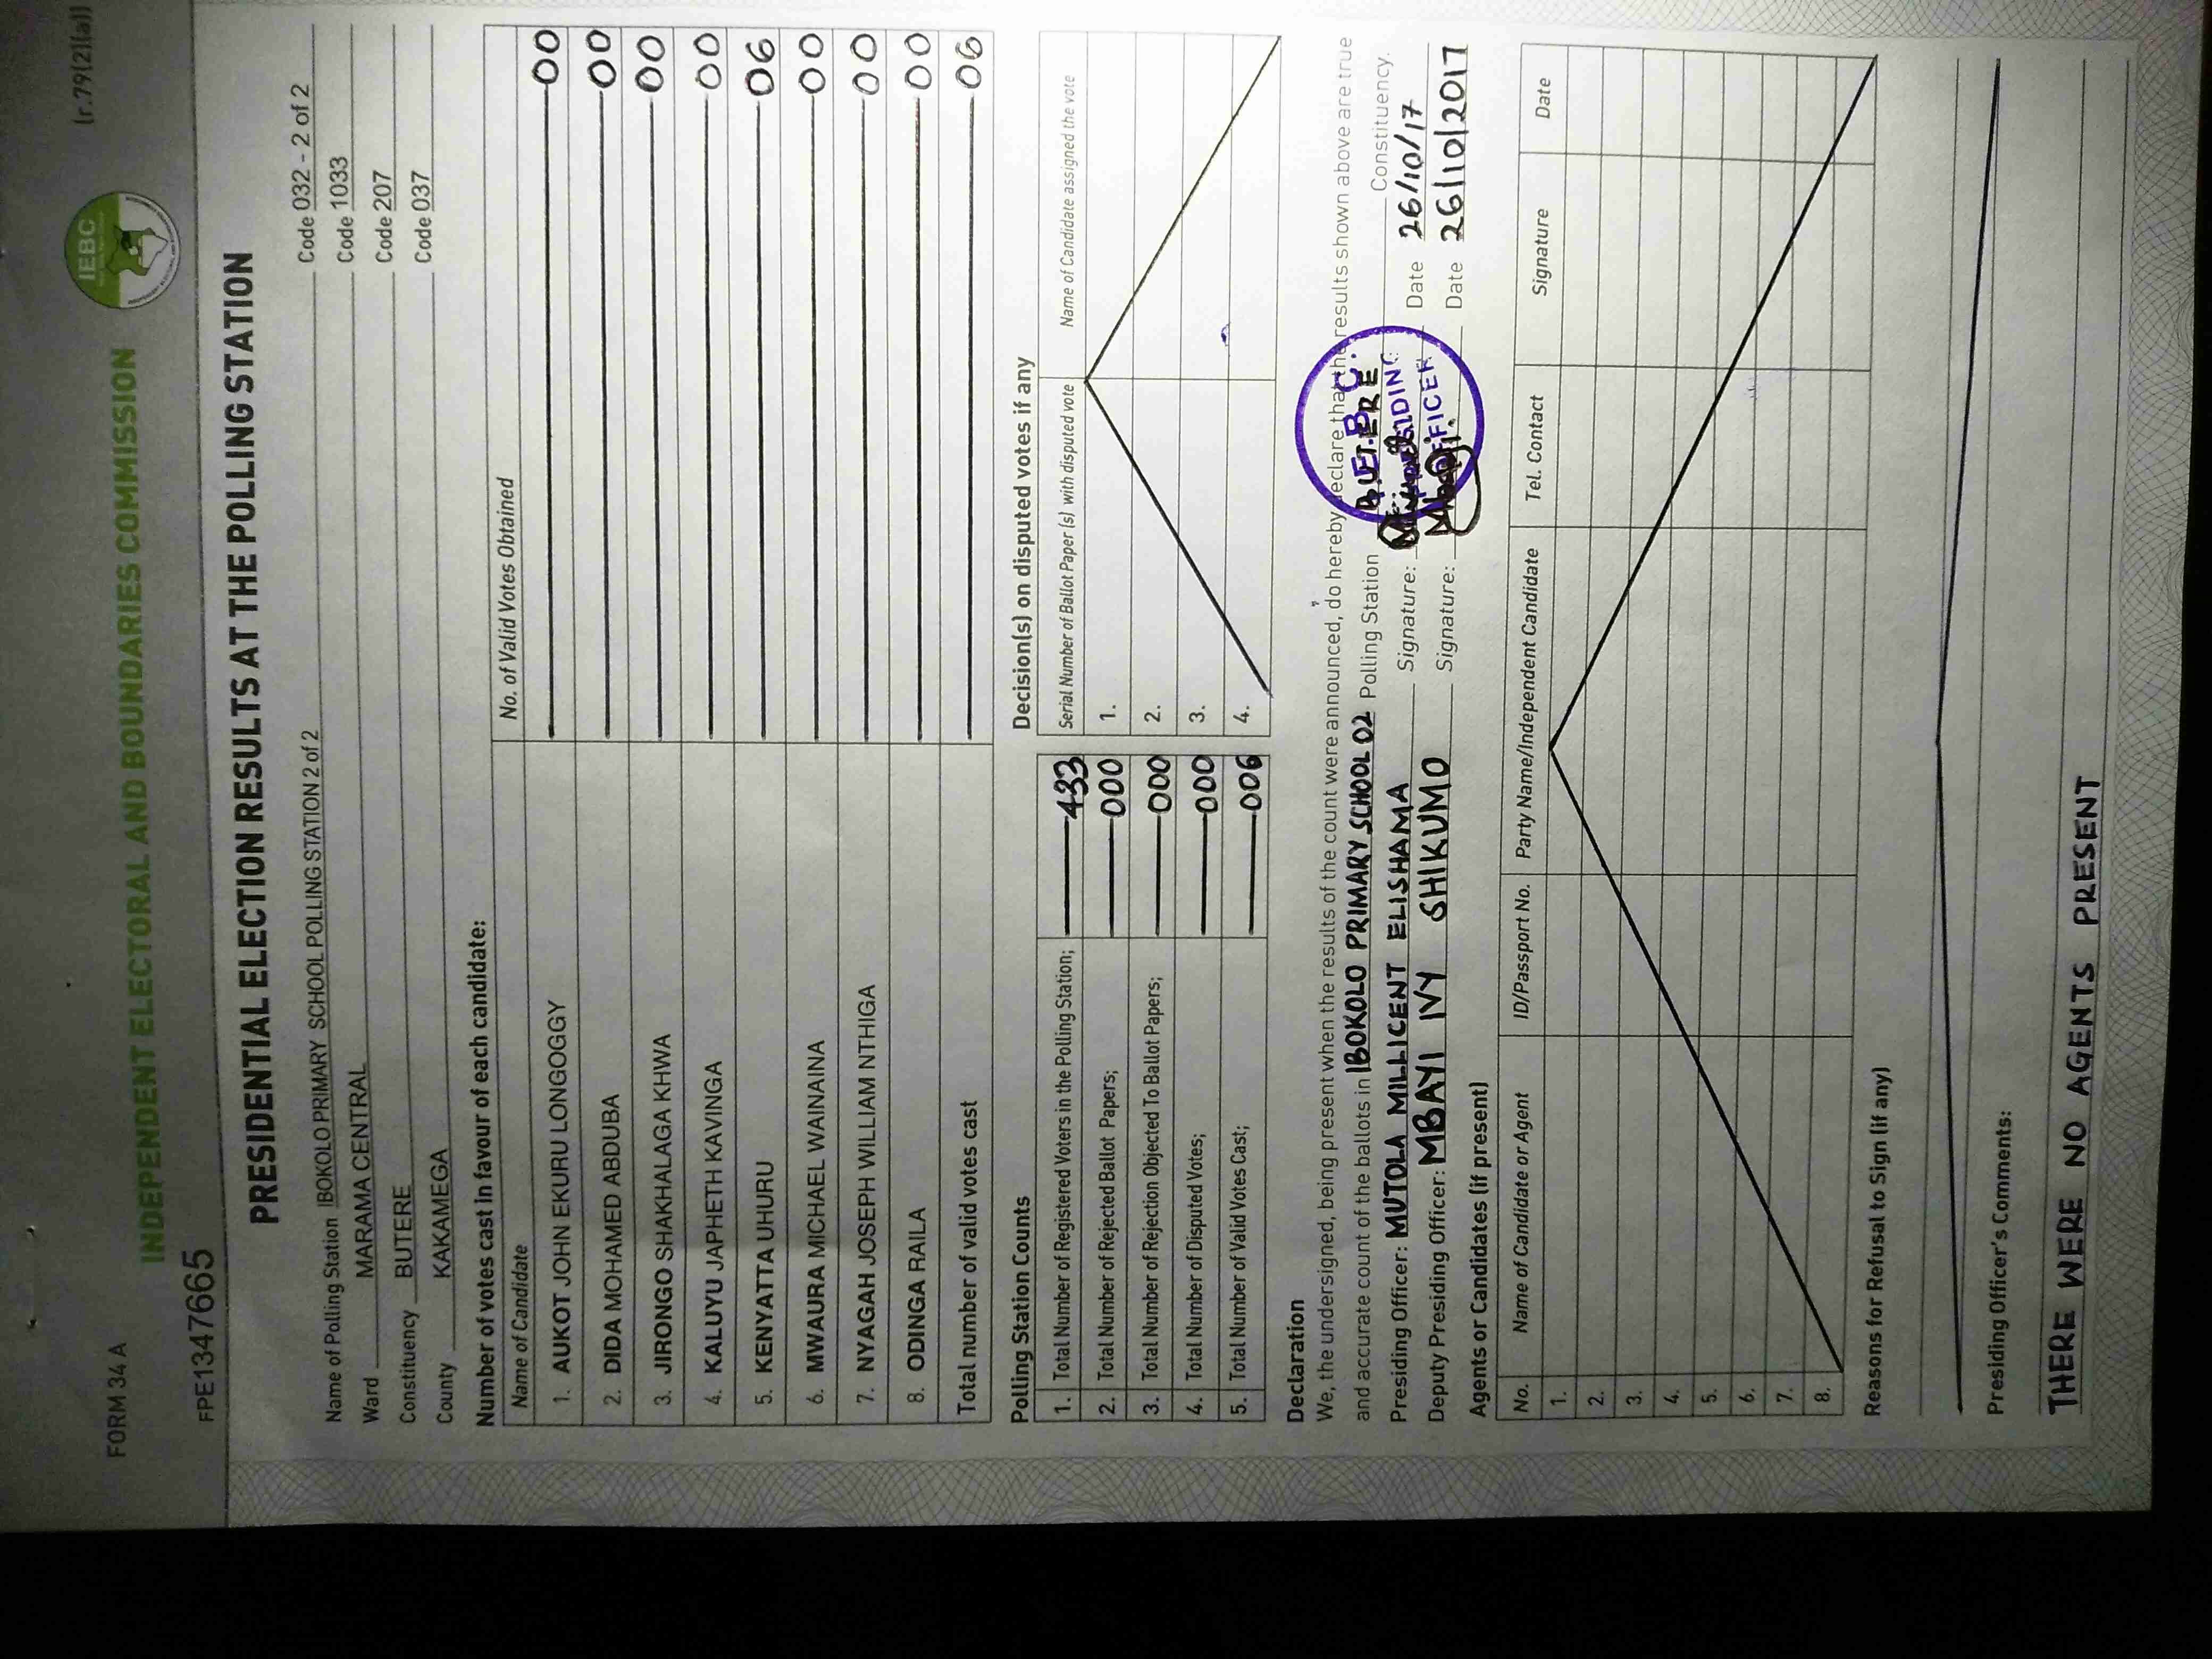 FORM 34 A
(r.79(2)(a))
IEBC
INDEPENDENT ELECTORAL AND BOUNDARIES COMMISSION
FPE1347665
PRESIDENTIAL ELECTION RESULTS AT THE POLLING STATION
Name of Polling Station IBOKOLO PRIMARY SCHOOL POLLING STATION 2 of 2 Code 032 - 2 of 2
Ward MARAMA CENTRAL Code 1033
Constituency BUTERE Code 207
County KAKAMEGA Code 037
Number of votes cast in favour of each candidate:
Name of Candidate No. of Valid Votes Obtained
1. AUKOT JOHN EKURU LONGOGGY 00
2. DIDA MOHAMED ABDUBA 00
3. JIRONGO SHAKHALAGA KHWA 00
4. KALUYU JAPHETH KAVINGA 00
5. KENYATTA UHURU 06
6. MWAURA MICHAEL WAINAINA 00
7. NYAGAH JOSEPH WILLIAM NTHIGA 00
8. ODINGA RAILA 00
Total number of valid votes cast 06
Polling Station Counts
1. Total Number of Registered Voters in the Polling Station; 433
2. Total Number of Rejected Ballot Papers; 000
3. Total Number of Rejection Objected To Ballot Papers; 000
4. Total Number of Disputed Votes; 000
5. Total Number of Valid Votes Cast; 006
Decision(s) on disputed votes if any
Serial Number of Ballot Paper (s) with disputed vote Name of Candidate assigned the vote
1.
2.
3.
4.
Declaration
We, the undersigned, being present when the results of the count were announced, do hereby declare that the results shown above are true
and accurate count of the ballots in IBOKOLO PRIMARY SCHOOL 02 Polling Station BUTERE Constituency.
Presiding Officer: MUTOLA MILLICENT ELISHAMA Signature: Date 26/10/17
Deputy Presiding Officer: MBAYI IVY SHIKUMO Signature: Date 26/10/2017
I.E.B.C.
PRESIDING
OFFICER
Agents or Candidates (if present)
No. Name of Candidate or Agent ID/Passport No. Party Name/Independent Candidate Tel. Contact Signature Date
1.
2.
3.
4.
5.
6.
7.
8.
Reasons for Refusal to Sign (if any)
Presiding Officer's Comments:
THERE WERE NO AGENTS PRESENT